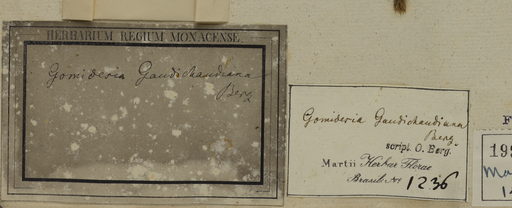 HERBARIUM REGIUM MONACENSE.
Gomidesia Gaudichaudiana
Berg
Gomidesia Gaudichaudiana
Berg
script. O. Berg.
Martii Herbar. Florae
Brasil. No 1236
F
193
Ma
1